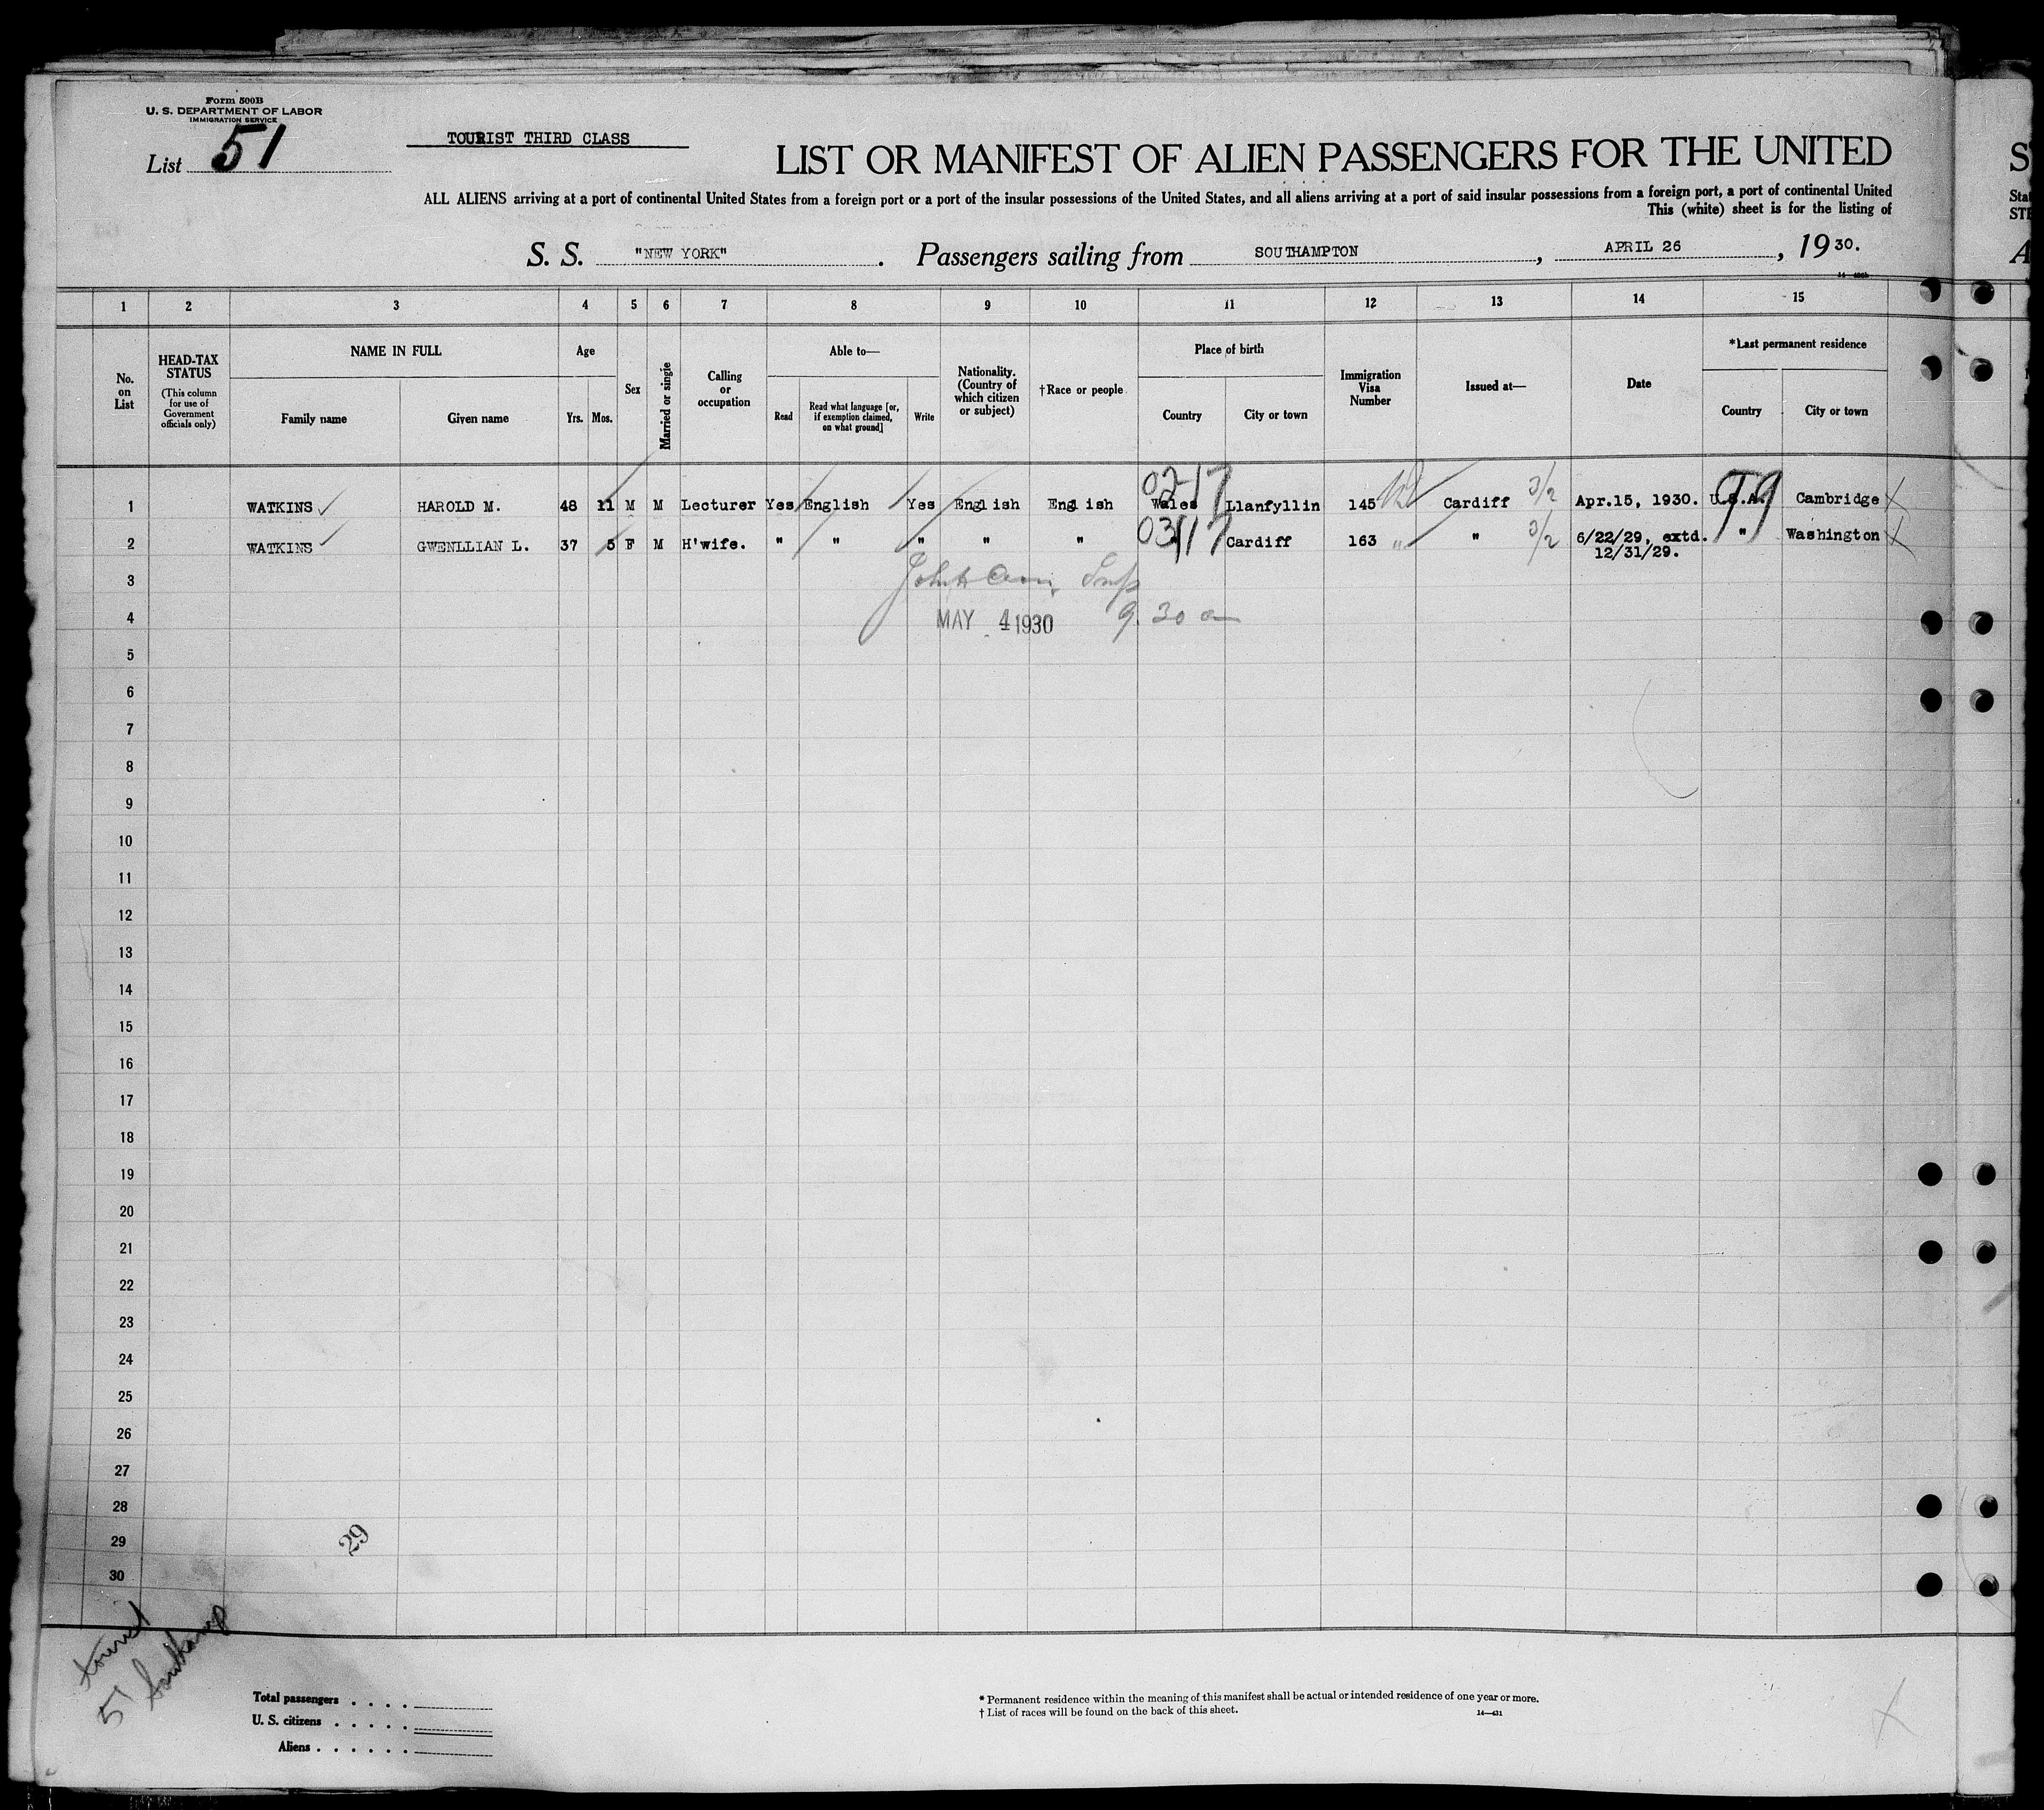 Form 500B
U. S. DEPARTMENT OF LABOR
IMMIGRATION SERVICE
List 51
TOURIST THIRD CLASS
LIST OR MANIFEST OF ALIEN PASSENGERS FOR THE UNITED
S
ALL ALIENS arriving at a port of continental United States from a foreign port or a port of the insular possessions of the United States, and all aliens arriving at a port of said insular possessions from a foreign port, a port of continental United
This (white) sheet is for the listing of
S. S. "NEW YORK". Passengers sailing from SOUTHAMPTON, APRIL 26, 1930.
1 2 3 4 5 6 7 8 9 10 11 12 13 14 15
No. on List
HEAD-TAX STATUS
(This column for use of Government officials only)
NAME IN FULL
Family name
Given name
Age
Yrs. Mos.
Sex
Married or single
Calling or occupation
Able to—
Read
Read what language [or, if exemption claimed, on what ground]
Write
Nationality. (Country of which citizen or subject)
†Race or people
Place of birth
Country
City or town
Immigration Visa Number
Issued at—
Date
*Last permanent residence
Country
City or town
02-17
1 WATKINS HAROLD M. 48 11 M M Lecturer Yes English Yes English English Wales Llanfyllin 145 Cardiff 3/2 Apr.15, 1930. U.S.A. Cambridge X
99
2 WATKINS GWENLLIAN L. 37 5 F M H'wife. " " " " " " Cardiff 163 " 3/2 6/22/29, extd. 12/31/29. " Washington X
03/17
3
MAY 4 1930 9.30 am
4
5
6
7
8
9
10
11
12
13
14
15
16
17
18
19
20
21
22
23
24
25
26
27
28
29
29
30
tourist
51 Southamp
Total passengers . . . .
U. S. citizens . . . . .
Aliens . . . . . .
* Permanent residence within the meaning of this manifest shall be actual or intended residence of one year or more.
† List of races will be found on the back of this sheet.
14—431
X